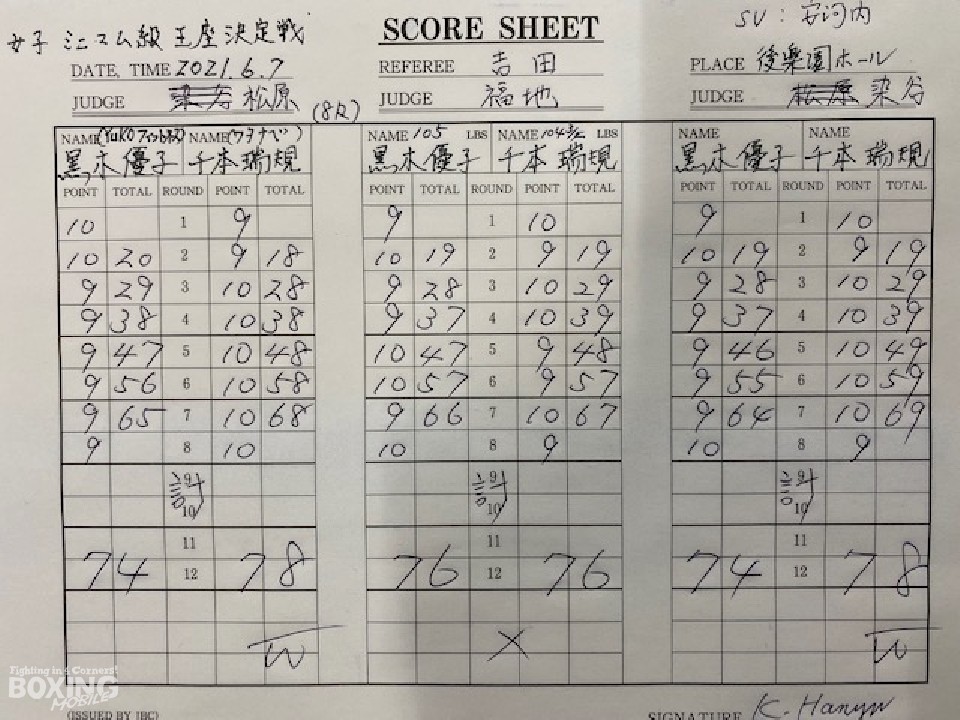 女子 ミニマム級 王座決定戦
SCORE SHEET
SV : 安河内
DATE, TIME 2021.6.7
REFEREE 吉田
PLACE 後楽園ホール
JUDGE 染谷 松原
(8R)
JUDGE 福地
JUDGE 松原 染谷
NAME (YuKOフィットネス) NAME (ワタナベ)
NAME 105 LBS NAME 104 3/4 LBS
NAME NAME
黒木優子 千本瑞規 黒木優子 千本瑞規 黒木優子 千本瑞規
POINT TOTAL ROUND POINT TOTAL POINT TOTAL ROUND POINT TOTAL POINT TOTAL ROUND POINT TOTAL
10 1 9 9 1 10 9 1 10
10 20 2 9 18 10 19 2 9 19 10 19 2 9 19
9 29 3 10 28 9 28 3 10 29 9 28 3 10 29
9 38 4 10 38 9 37 4 10 39 9 37 4 10 39
9 47 5 10 48 10 47 5 9 48 9 46 5 10 49
9 56 6 10 58 10 57 6 9 57 9 55 6 10 59
9 65 7 10 68 9 66 7 10 67 9 64 7 10 69
9 8 10 10 8 9 10 8 9
計 9 計 9 計 9
10 10 10
11 11 11
74 12 78 76 12 76 74 12 78
W X W
Fighting in 4 Corners!
BOXING
MOBILE
(ISSUED BY JBC)
SIGNATURE K. Hanyu